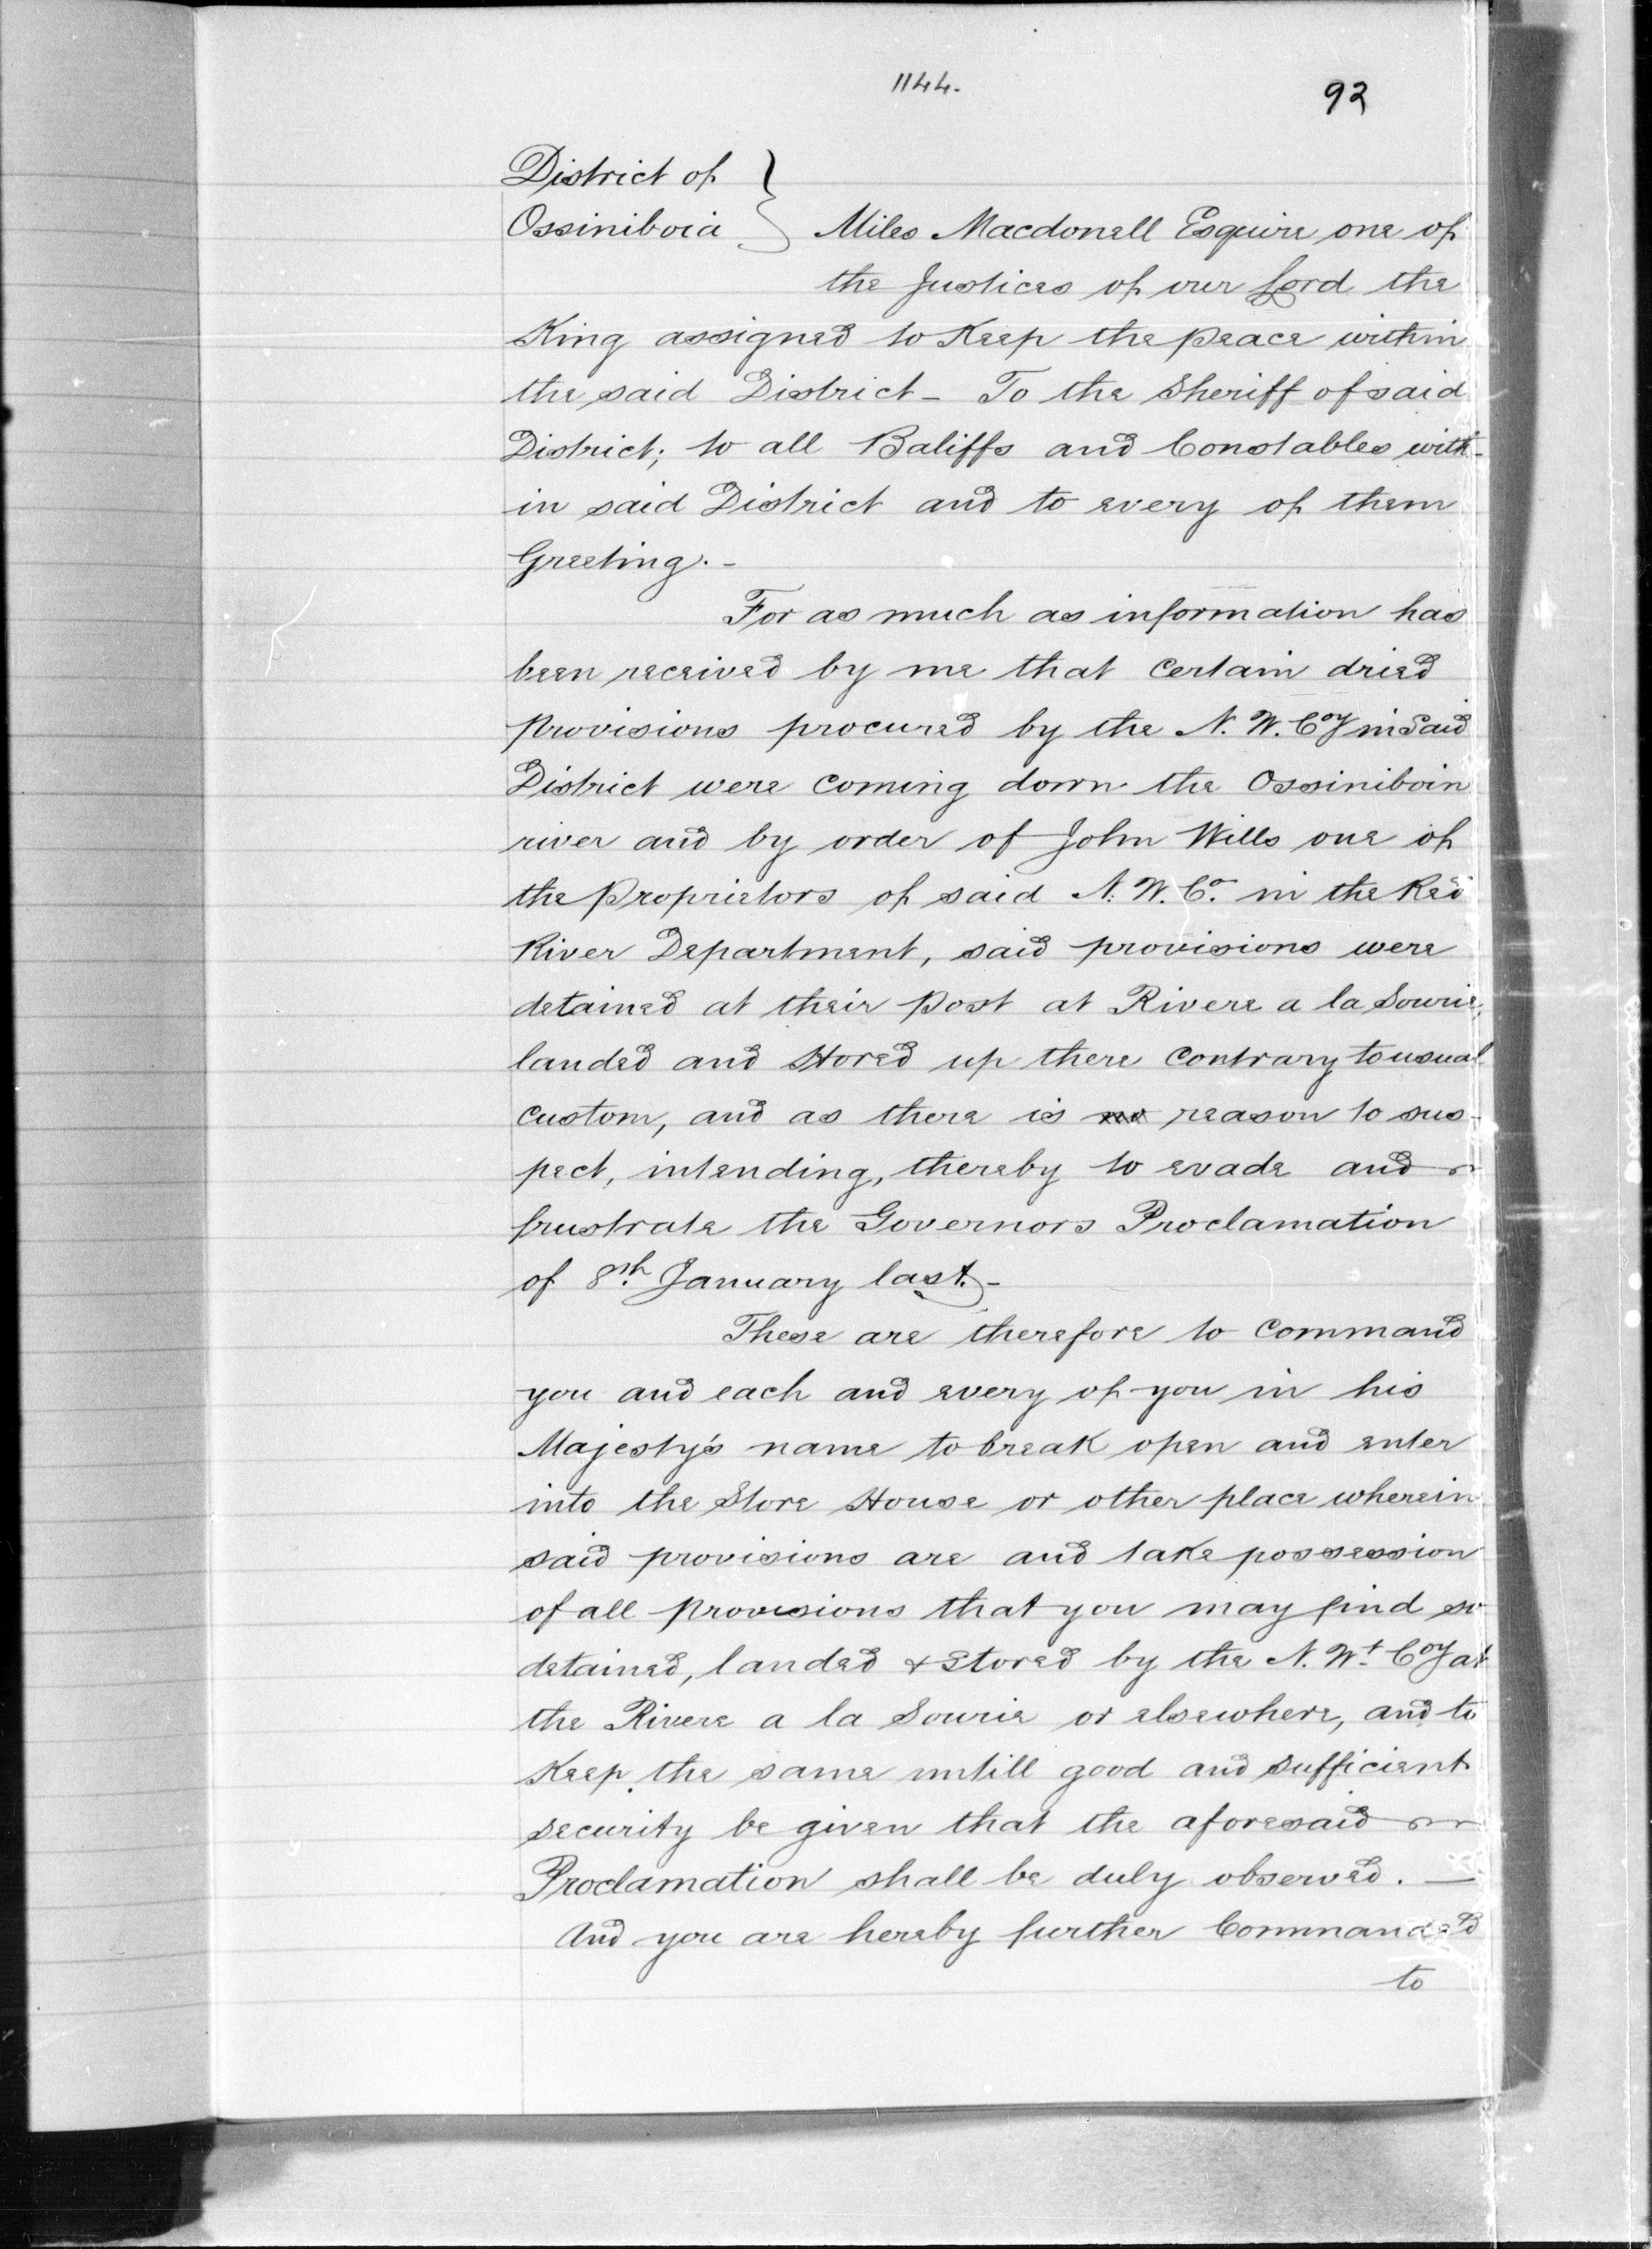 1144.
92
District of }
Ossiniboia } Miles Macdonell Esquire one of
the Justices of our Lord the
King assigned to Keep the peace within
the said District - To the Sheriff of said
District; to all Baliffs and Constables with-
in said District and to every of them
Greeting. -
For as much as information has
been received by me that certain dried
provisions procured by the N. W. Coy in Said
District were coming down the Ossiniboin
river and by order of John Wills one of
the proprietors of said N. W. Co. in the Red
River Department, said provisions were
detained at their post at Rivere a la Sourie,
landed and stored up there contrary to usual
custom, and as there is no reason to sus-
pect, intending, thereby to evade and
frustrate the Governors Proclamation
of 8th January last. -
These are therefore to command
you and each and every of you in his
Majesty's name to break open and enter
into the Store House or other place wherein
said provisions are and take possession
of all provisions that you may find so
detained, landed & stored by the N. Wt. Coy at
the Rivere a la Sourie or elsewhere, and to
Keep the same untill good and sufficient
security be given that the aforesaid
Proclamation shall be duly observed. —
And you are hereby further Commanded
to